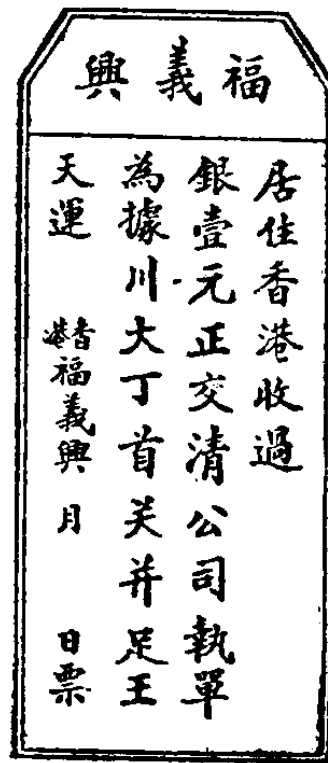 福義興
居住香港收過
銀壹元正交清公司執單
為據川大丁首关并足王
天運 香港福義興 月 日票